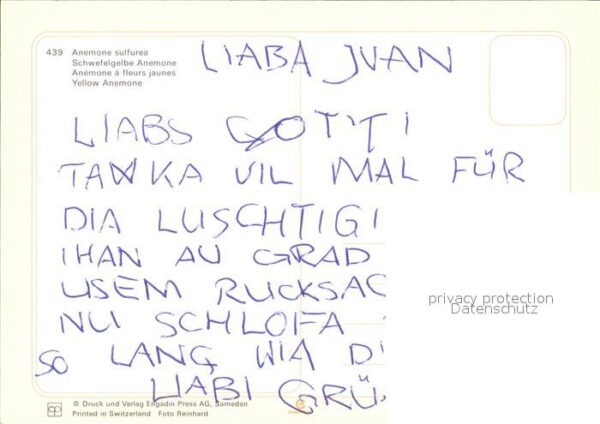 439 Anemone sulfurea
Schwefelgelbe Anemone
Anémone à fleurs jaunes
Yellow Anemone
LIABA JVAN
LIABS GOTTI
TANKA VIL MAL FÜR
DIA LUSCHTIGI
IHAN AU GRAD
USEM RUCKSAC
NU SCHLOFA
SO LANG WIA DI
LIABI GRÜS
privacy protection
Datenschutz
© Druck und Verlag Engadin Press AG, Samedan
Printed in Switzerland Foto Reinhard